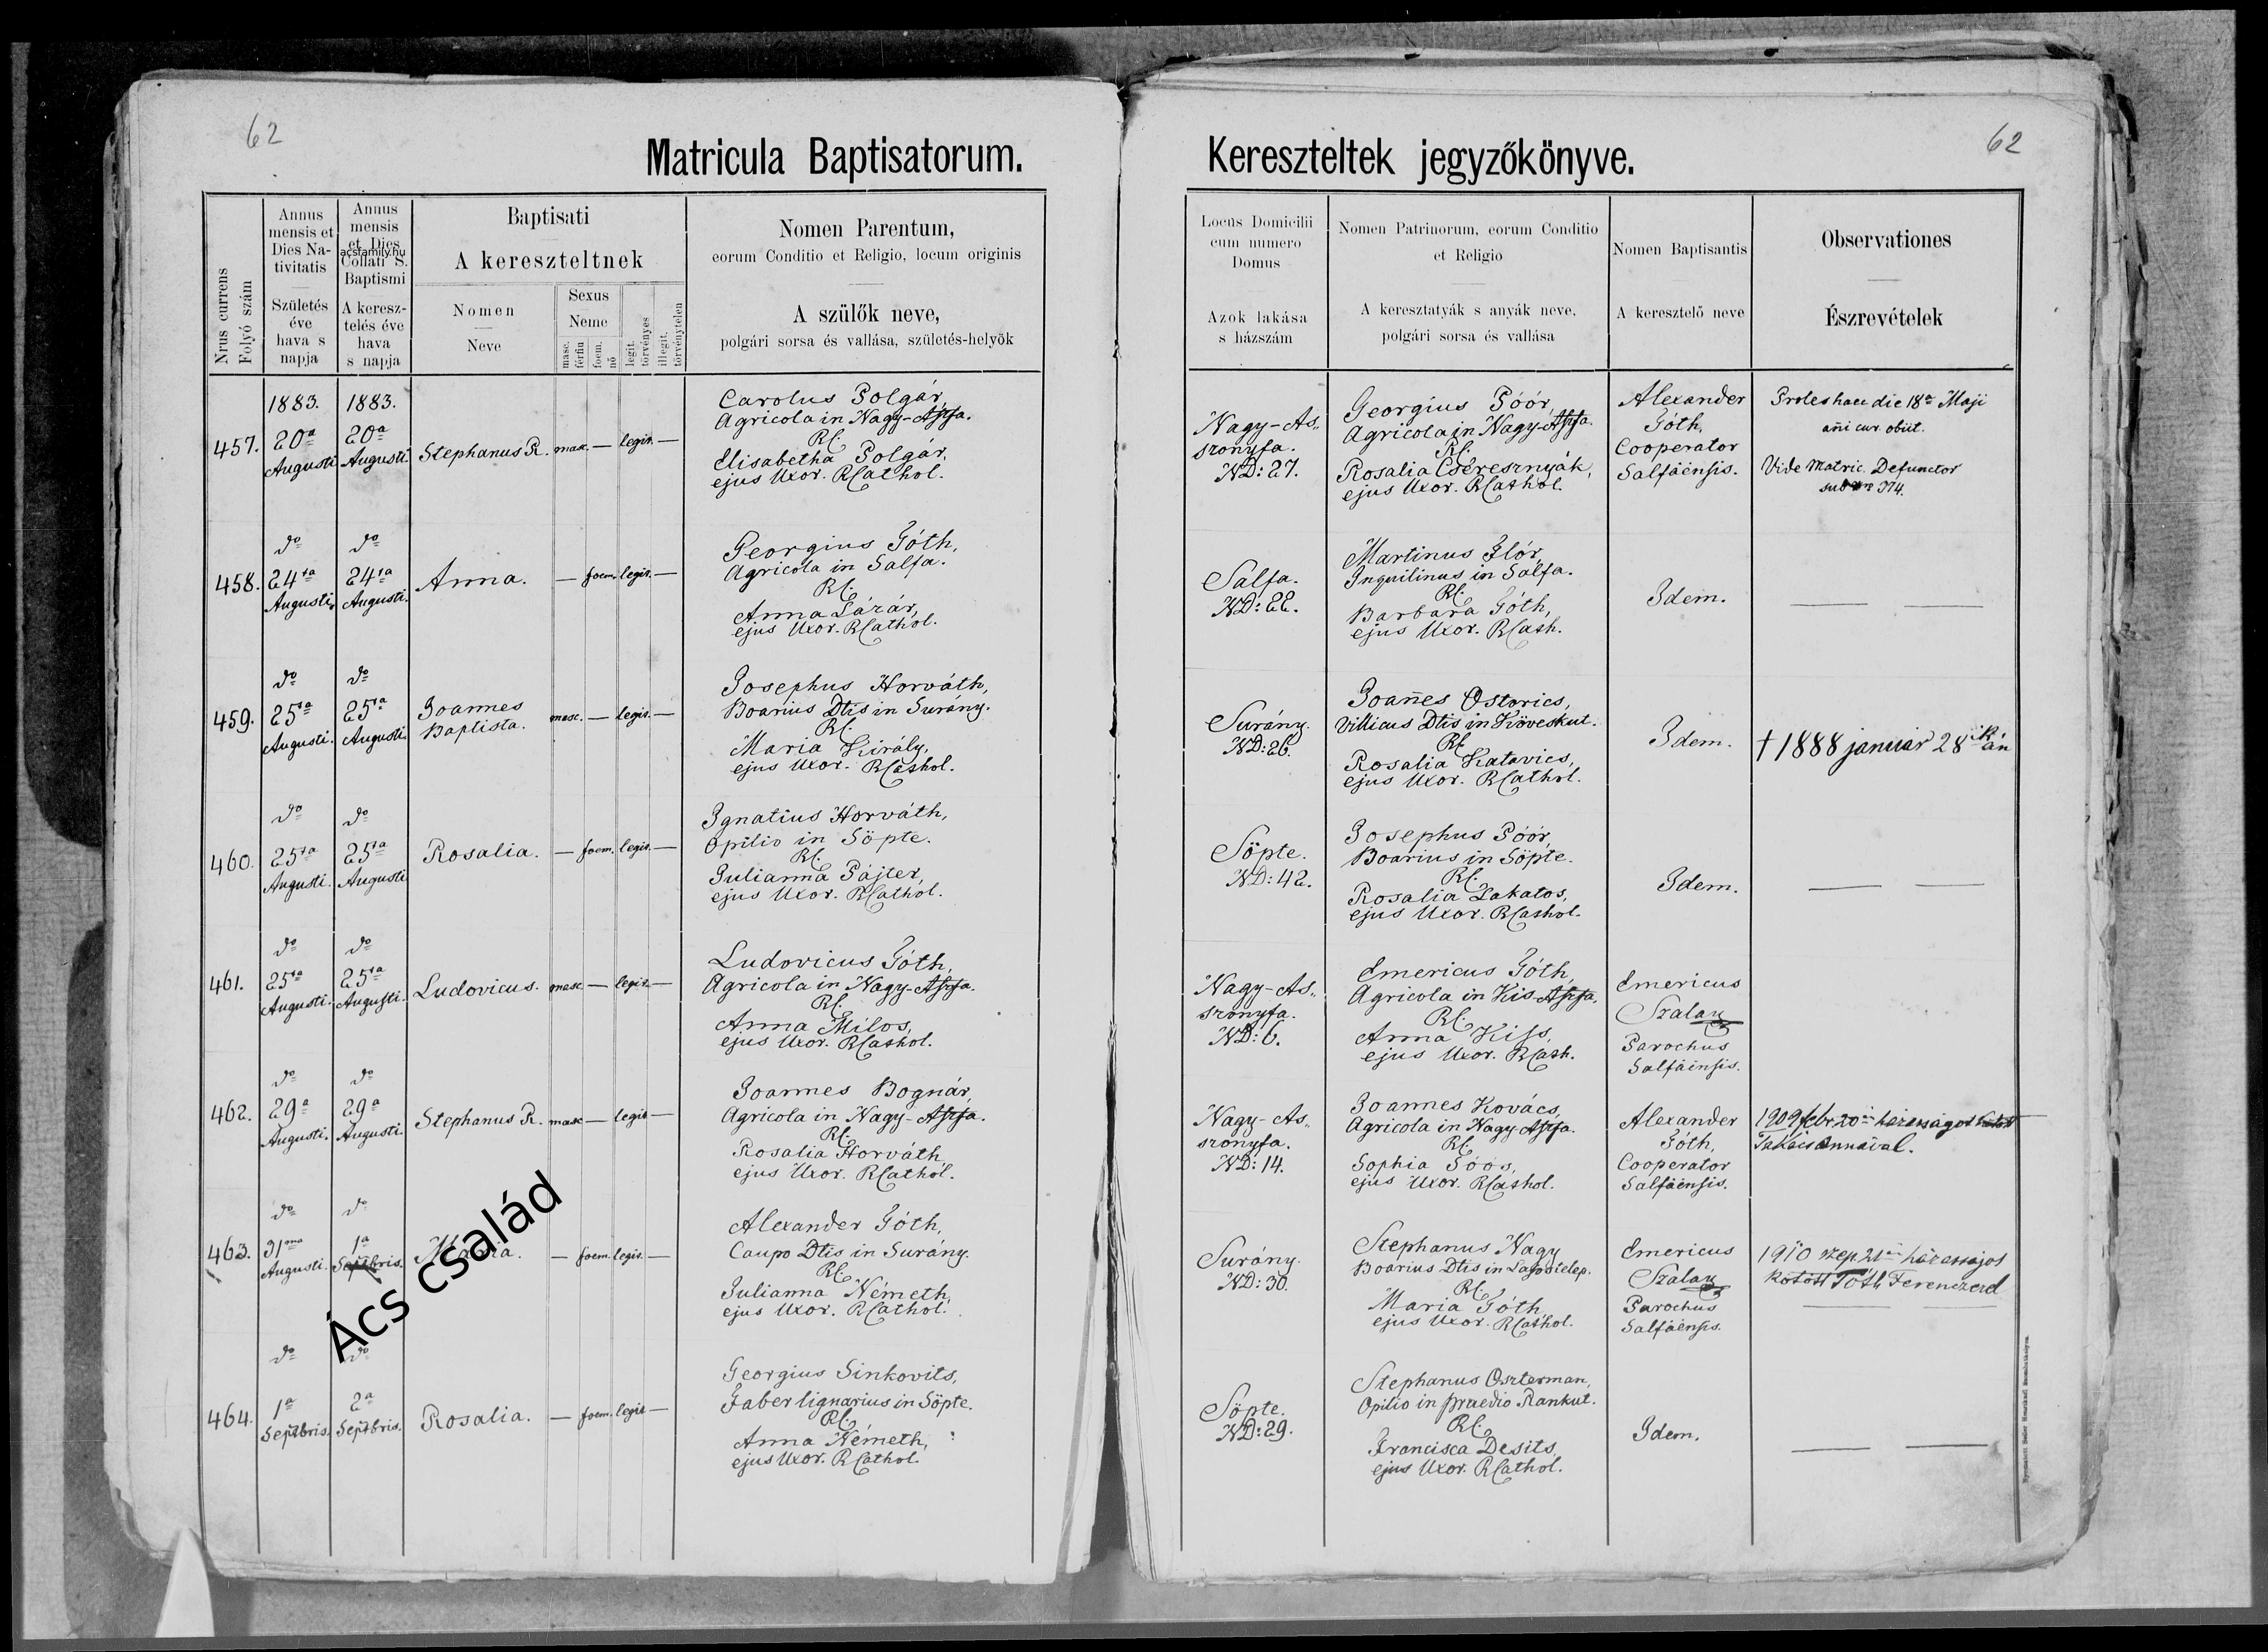 62
Matricula Baptisatorum.
Nrus currens
Folyó szám
Annus
mensis et
Dies Na-
tivitatis
Születés
éve
hava s
napja
Annus
mensis
et Dies
acsfamily.hu
Collati S.
Baptismi
A keresz-
telés éve
hava
s napja
Baptisati
A kereszteltnek
Nomen
Neve
Sexus
Neme
masc.
férfiu
foem.
nő
legit.
törvényes
illegit.
törvénytelen
Nomen Parentum,
eorum Conditio et Religio, locum originis
A szülők neve,
polgári sorsa és vallása, születés-helyök
457.
1883.
20a
Augusti
1883.
20a
Augusti.
Stephanus R.
masc. — legit. —
Carolus Polgár,
Agricola in Nagy-Assfa.
RC.
Elisabetha Polgár,
ejus Uxor. RCathol.
458.
do
24ta
Augusti.
do
24ta
Augusti.
Anna.
— foem. legit. —
Georgius Tóth,
Agricola in Salfa.
RC.
Anna Lázár,
ejus Uxor. RCathol.
459.
do
25ta
Augusti.
do
25ta
Augusti.
Joannes
Baptista.
masc. — legit. —
Josephus Horváth,
Boarius Dtis in Surány.
RC.
Maria Király,
ejus Uxor. RCathol.
460.
do
25ta
Augusti.
do
25ta
Augusti
Rosalia.
— foem. legit. —
Ignatius Horváth,
Opilio in Söpte.
RC.
Julianna Pájter,
ejus Uxor. RCathol.
461.
do
25ta
Augusti.
do
25ta
Augusti.
Ludovicus.
masc — legit. —
Ludovicus Tóth,
Agricola in Nagy-Assfa.
RC.
Anna Milos,
ejus Uxor. RCathol.
462.
do
29a
Augusti.
do
29a
Augusti.
Stephanus R.
masc — legit —
Joannes Bognár,
Agricola in Nagy-Assfa.
RC.
Rosalia Horváth,
ejus Uxor. RCathol.
463.
do
31ma
Augusti.
do
1a
Septbris.
Mária.
— foem. legit. —
Alexander Tóth,
Caupo Dtis in Surány.
RC.
Julianna Németh,
ejus Uxor. RCathol.
Ács család
464.
do
1a
Septbris.
do
2a
Septbris.
Rosalia.
— foem. legit —
Georgius Sinkovits,
Faber lignarius in Söpte.
RC.
Anna Németh,
ejus Uxor. RCathol.
62
Kereszteltek jegyzőkönyve.
Locus Domicilii
cum numero
Domus
Azok lakása
s házszám
Nomen Patrinorum, eorum Conditio
et Religio
A keresztatyák s anyák neve,
polgári sorsa és vallása
Nomen Baptisantis
A keresztelő neve
Observationes
Észrevételek
Nagy-As„
szonyfa.
ND: 27.
Georgius Póór,
Agricola in Nagy-Assfa.
RC.
Rosalia Cseresznyák,
ejus Uxor. RCathol.
Alexander
Tóth,
Cooperator
Salfäensis.
Proles haec die 18a Maji
añi cur. obiit.
Vide Matric. Defunctor
sub 374.
Salfa.
ND: 22.
Martinus Flór,
Inquilinus in Salfa.
RC.
Barbara Tóth,
ejus Uxor. RCath.
Idem.
Surány.
ND: 26.
Joañes Ostorics,
Villicus Dtis in Köveskut.
RC.
Rosalia Katavics,
ejus Uxor. RCathol.
Idem.
† 1888 január 28ikán
Söpte.
ND: 42.
Josephus Póór,
Boarius in Söpte.
RC.
Rosalia Lakatos,
ejus Uxor. RCathol.
Idem.
Nagy-As„
szonyfa.
ND: 6.
Emericus Tóth,
Agricola in Kis-Assfa.
RC.
Anna Kiss,
ejus Uxor. RCath.
Emericus
Szalay
Parochus
Salfäensis.
Nagy-As„
szonyfa.
ND: 14.
Joannes Kovács,
Agricola in Nagy-Assfa.
RC.
Sophia Soós,
ejus Uxor. RCathol.
Alexander
Tóth,
Cooperator
Salfäensis.
1909 febr. 20án házasságot kötött
Takács Annával.
Surány.
ND: 30.
Stephanus Nagy
Boarius Dtis in Lajostelep.
RC.
Maria Tóth
ejus Uxor. RCathol.
Emericus
Szalay
Parochus
Salfäensis.
1910 szep 21én házasságot
kötött Tóth Ferenczczel
Söpte.
ND: 29.
Stephanus Oszterman,
Opilio in praedio Rankut.
RC.
Francisca Desits,
ejus Uxor. RCathol.
Idem.